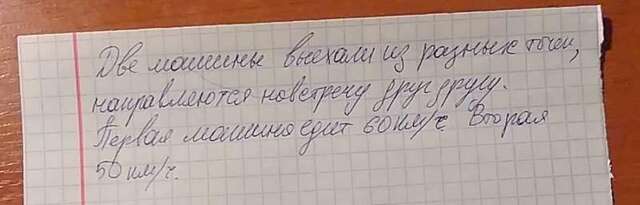 Две машины выехали из разных точек,
направляются навстречу друг другу.
Первая машина едит 60км/ч. Вторая
50км/ч.